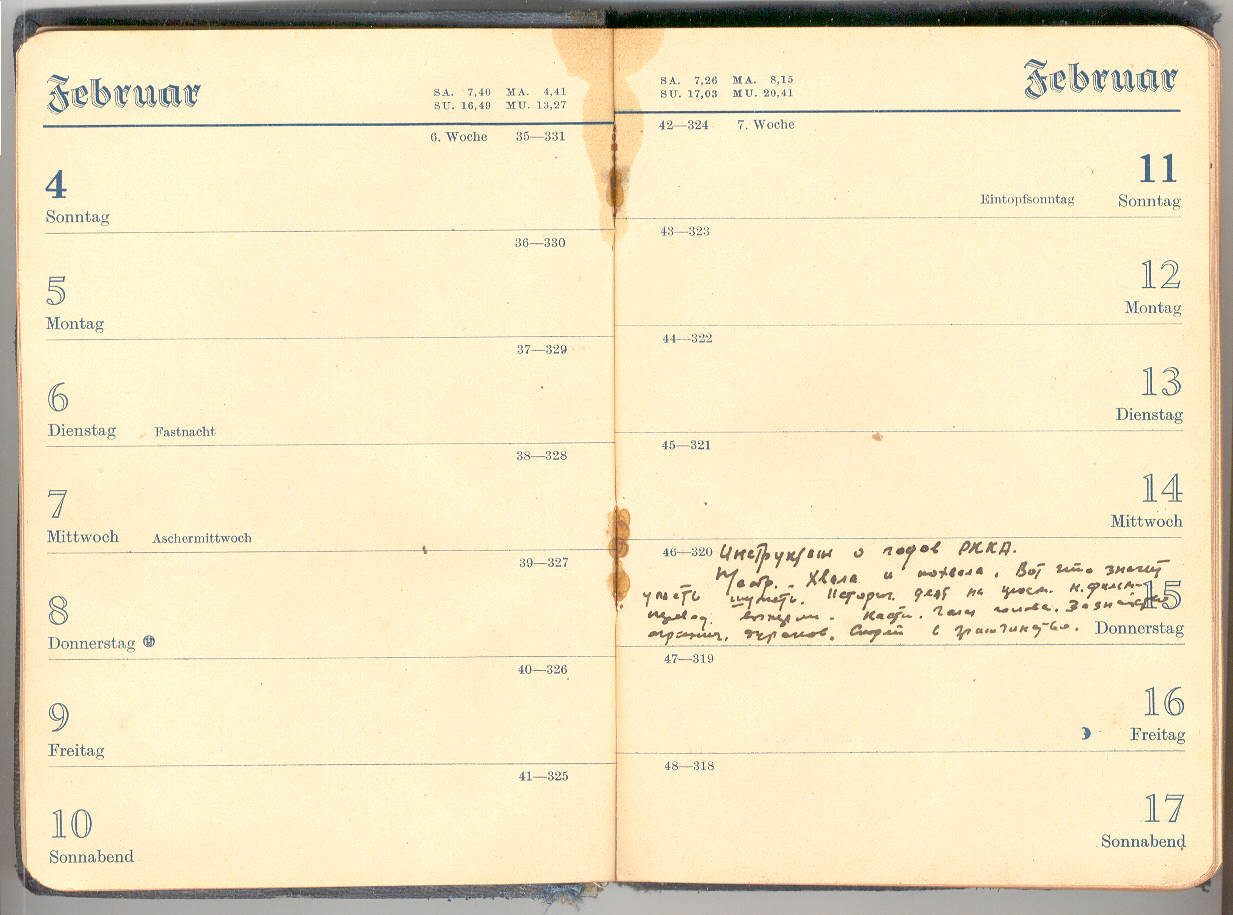 Februar
SA. 7,40 MA. 4,41
SU. 16,49 MU. 13,27
6. Woche 35—331
4
Sonntag
36—330
5
Montag
37—329
6
Dienstag Fastnacht
38—328
7
Mittwoch Aschermittwoch
39—327
8
Donnerstag
40—326
9
Freitag
41—325
10
Sonnabend
Februar
SA. 7,26 MA. 8,15
SU. 17,03 MU. 20,41
42—324 7. Woche
11
Eintopfsonntag Sonntag
43—323
12
Montag
44—322
13
Dienstag
45—321
14
Mittwoch
46—320 о годов РККА.
Хвала и похвала. Вот что значит
уметь шуметь. на
15
голова.
с
Donnerstag
47—319
16
Freitag
48—318
17
Sonnabend